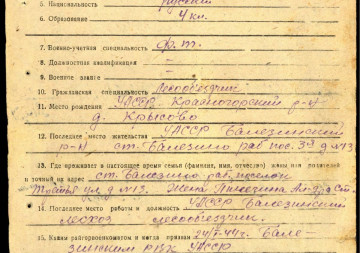 5. Национальность русский
6. Образование 4 кл.
7. Военно-учетная специальность ф. т.
8. Должностная квалификация —
9. Воинское звание —
10. Гражданская специальность Лесообъездчик
11. Место рождения УАССР Красногорский р-н
д. Крысово
12. Последнее место жительства УАССР Балезинский
р-н ст. Балезино раб. пос. 3я д №13
13. Где проживает в настоящее время семья (фамилия, имя, отчество) жены или родителей
и точный их адрес ст. Балезино раб. поселок
ул. д №13. Жена
14. Последнее место работы и должность УАССР Балезинский
лесхоз лесообъездчик.
15. Каким райгорвоенкоматом и когда призван 24/V-44 г. Бале-
зинским РВК УАССР